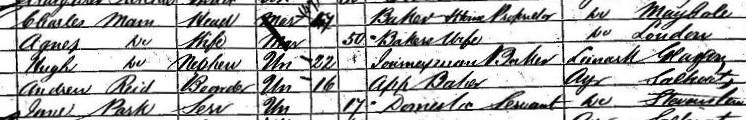 Charles Mann Head Mar 57 Baker Proprietor Do Maybole
Agnes Do Wife Mar 50 Bakers Wife Do London
Hugh Do Nephew Un 22 Journeyman Baker Lanark Glasgow
Andrew Reid Boarder Un 16 App Baker Ayr
Jane Park Serv Un 17 Domestic Servant Do